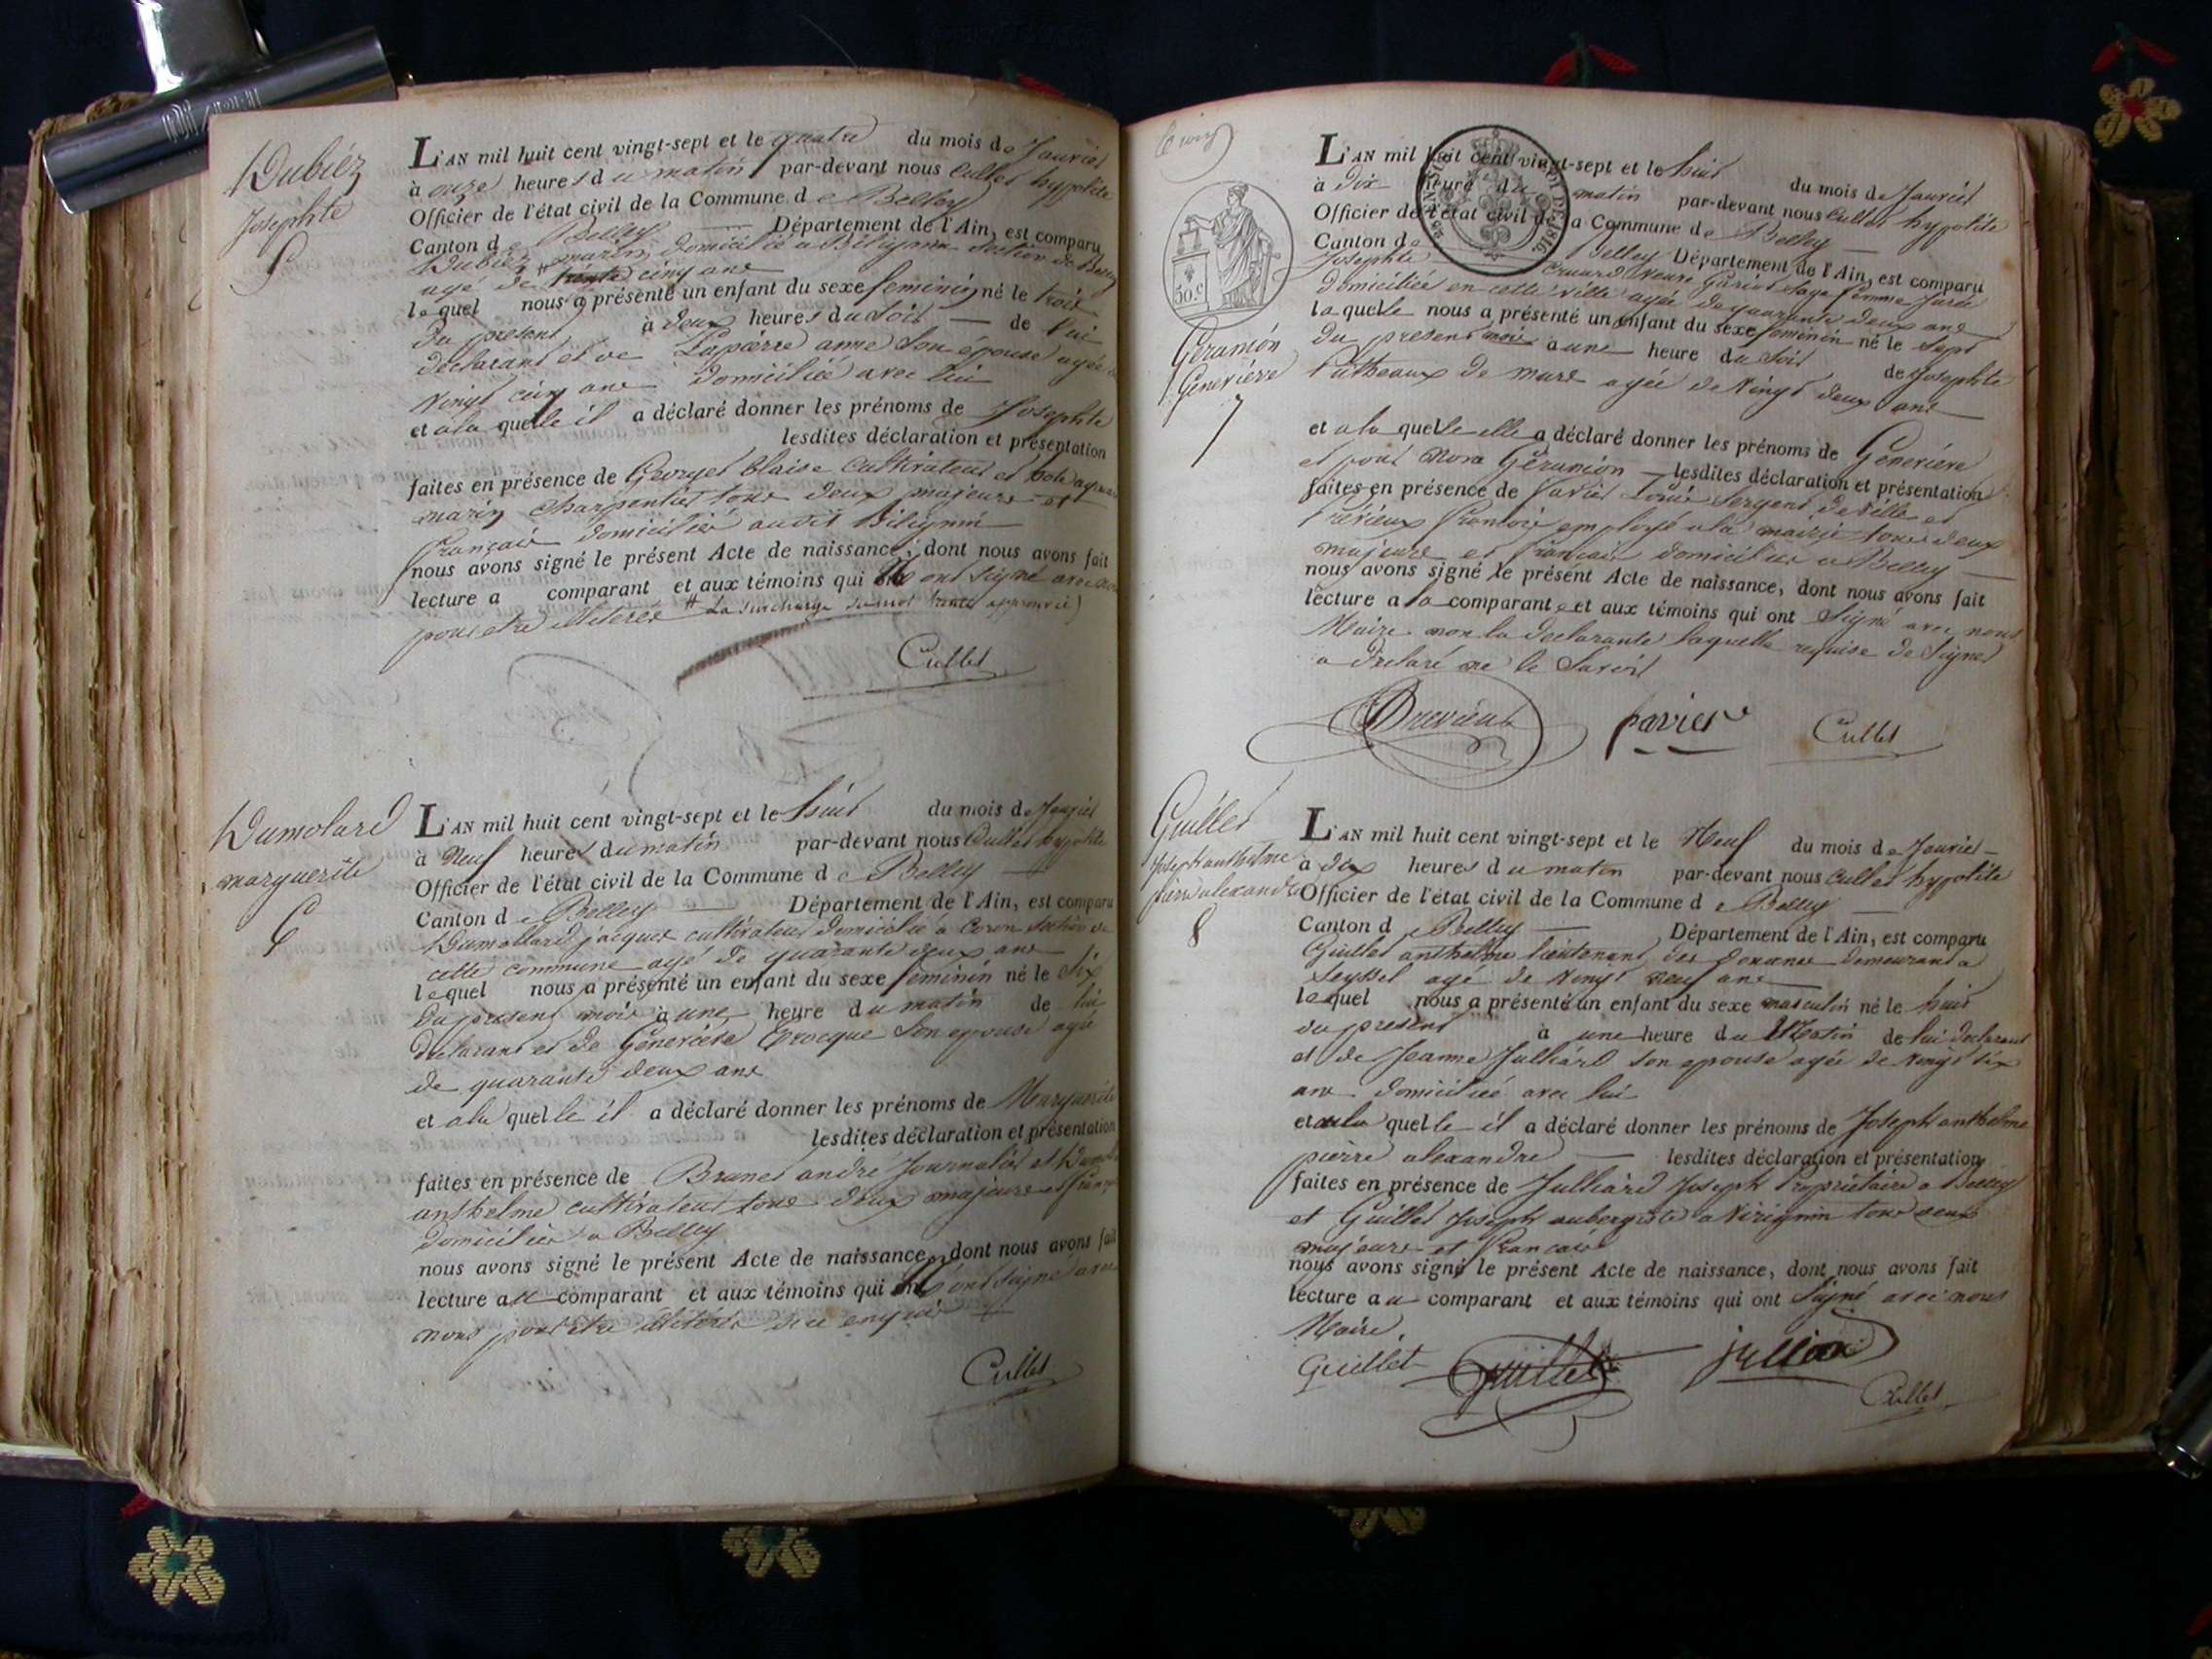 Dubiez
Josephte
5
L'AN mil huit cent vingt-sept et le quatre du mois de Janvier
à onze heures du matin par-devant nous Cullet hypolite
Officier de l'état civil de la Commune de Belley
Canton de Belley Département de l'Ain, est comparu
Dubiez marin domicilié a Bilignin Section de Belley
agé de trente cinq ans
lequel nous a présenté un enfant du sexe feminin né le trois
du present à deux heures du soir de lui
declarant et de Lapierre anne son épouse agée de
vingt cinq ans domiciliée avec lui
et a la quelle il a déclaré donner les prénoms de Josephte
lesdites déclaration et présentation
faites en présence de Georget blaise cultivateur et
marin charpentier tous deux majeurs et
français domiciliés audit Bilignin
nous avons signé le présent Acte de naissance, dont nous avons fait
lecture a comparant et aux témoins qui ont signé avec nous
pour etre illiterés # La surcharge du mot trente approuvée)
Cullet
Dumolard
marguerite
6
L'AN mil huit cent vingt-sept et le huit du mois de Janvier
à Neuf heures du matin par-devant nous Cullet hypolite
Officier de l'état civil de la Commune de Belley
Canton de Belley Département de l'Ain, est comparu
Dumollard jacques cultivateur domicilié à Coron section de
cette commune agé de quarante deux ans
lequel nous a présenté un enfant du sexe feminin né le six
du present mois à une heure du matin de lui
declarant et de Genevieve son epouse agée
de quarante deux ans
et a la quelle il a déclaré donner les prénoms de Marguerite
lesdites déclaration et présentation
faites en présence de Brunet andré Journalier et
anthelme cultivateur tous deux majeurs et français
domiciliés a Belley
nous avons signé le présent Acte de naissance, dont nous avons fait
lecture au comparant et aux témoins qui n'ont signé avec
nous pour etre illiterés de ce enquis
Cullet
50.c
LOI DE 1816.
L'AN mil huit cent vingt-sept et le huit du mois de Janvier
à dix heure du matin par-devant nous Cullet hypolite
Officier de l'état civil de la Commune de Belley
Canton de Belley Département de l'Ain, est comparu
Josephte veuve sage femme jurée
domiciliée en cette ville agée de quarante deux ans
laquelle nous a présenté un enfant du sexe feminin né le sept
du present mois a une heure du soir de Josephte
de mars agée de vingt deux ans
Geramion
Genevieve
7
et a la quelle elle a déclaré donner les prénoms de Genevieve
et pour nom Geramion lesdites déclaration et présentation
faites en présence de Pavier Louis Sergent de ville et
francois employé a la mairie tous deux
majeurs et français domiciliés a Belley
nous avons signé le présent Acte de naissance, dont nous avons fait
lecture a la comparante et aux témoins qui ont signé avec nous
Maire non la declarante laquelle requise de signer
a declaré ne le savoir
pavier
Cullet
Guillet
Joseph anthelme
pierre alexandre
8
L'AN mil huit cent vingt-sept et le Neuf du mois de Janvier
à dix heures du matin par-devant nous Cullet hypolite
Officier de l'état civil de la Commune de Belley
Canton de Belley Département de l'Ain, est comparu
Guillet anthelme lieutenant des douanes demeurant a
Seyssel agé de vingt neuf ans
lequel nous a présenté un enfant du sexe masculin né le huit
du present à une heure du Matin de lui declarant
et de Jeanne Julliard son epouse agée de vingt six
ans domiciliée avec lui
et a la quelle il a déclaré donner les prénoms de Joseph anthelme
pierre alexandre lesdites déclaration et présentation
faites en présence de Julliard Joseph Propriétaire a Belley
et Guillet Joseph aubergiste a Virignin tous deux
majeurs et francais
nous avons signé le présent Acte de naissance, dont nous avons fait
lecture au comparant et aux témoins qui ont signé avec nous
Maire.
Guillet Guillet
Cullet